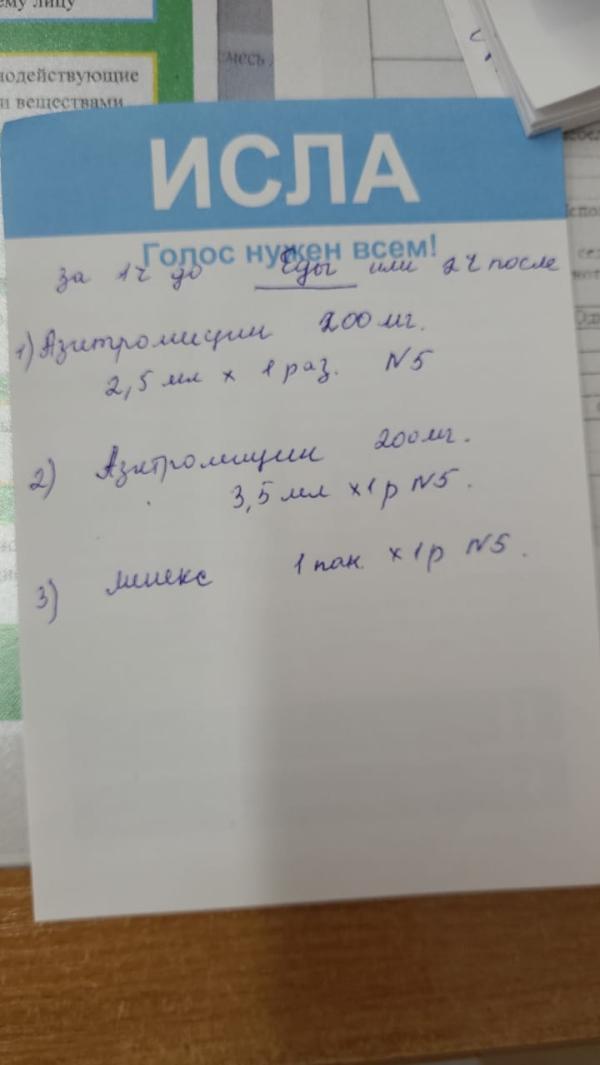 ему лицу
нодействующие
и веществами
месь
ИСЛА
Голос нужен всем!
за 1ч до Еды или 2ч после
1) Азитромицин 200 мг.
2,5 мл х 1 раз. N5
2) Азитромицин 200 мг.
3,5 мл х 1 р N5.
3) 1 пак. х 1 р N5.